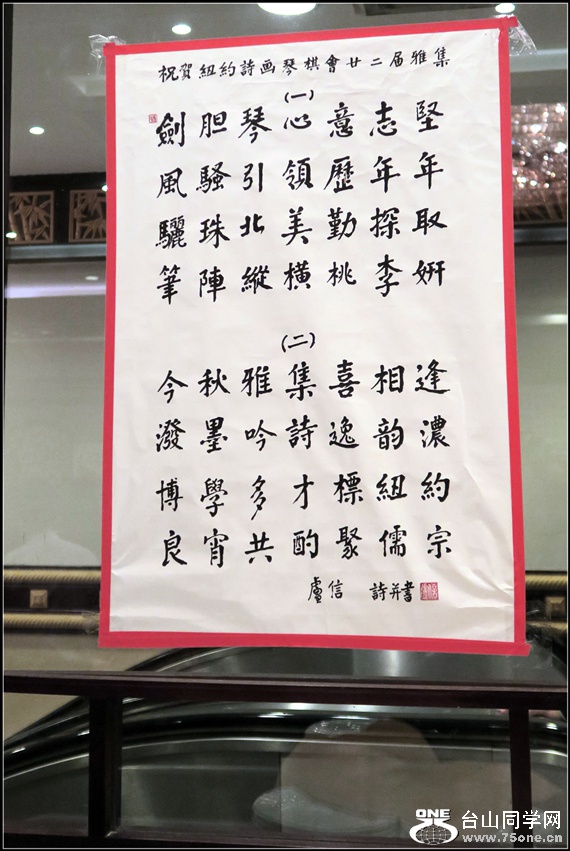 祝賀紐約詩画琴棋會廿二届雅集
(一)
劍胆琴心意志堅
風騷引領歷年年
驪珠北美勤探取
筆陣縱橫桃李妍
(二)
今秋雅集喜相逢
潑墨吟詩逸韵濃
博學多才標紐約
良宵共酌聚儒宗
盧信 詩并書
ONE 台山同学网
www.75one.cn